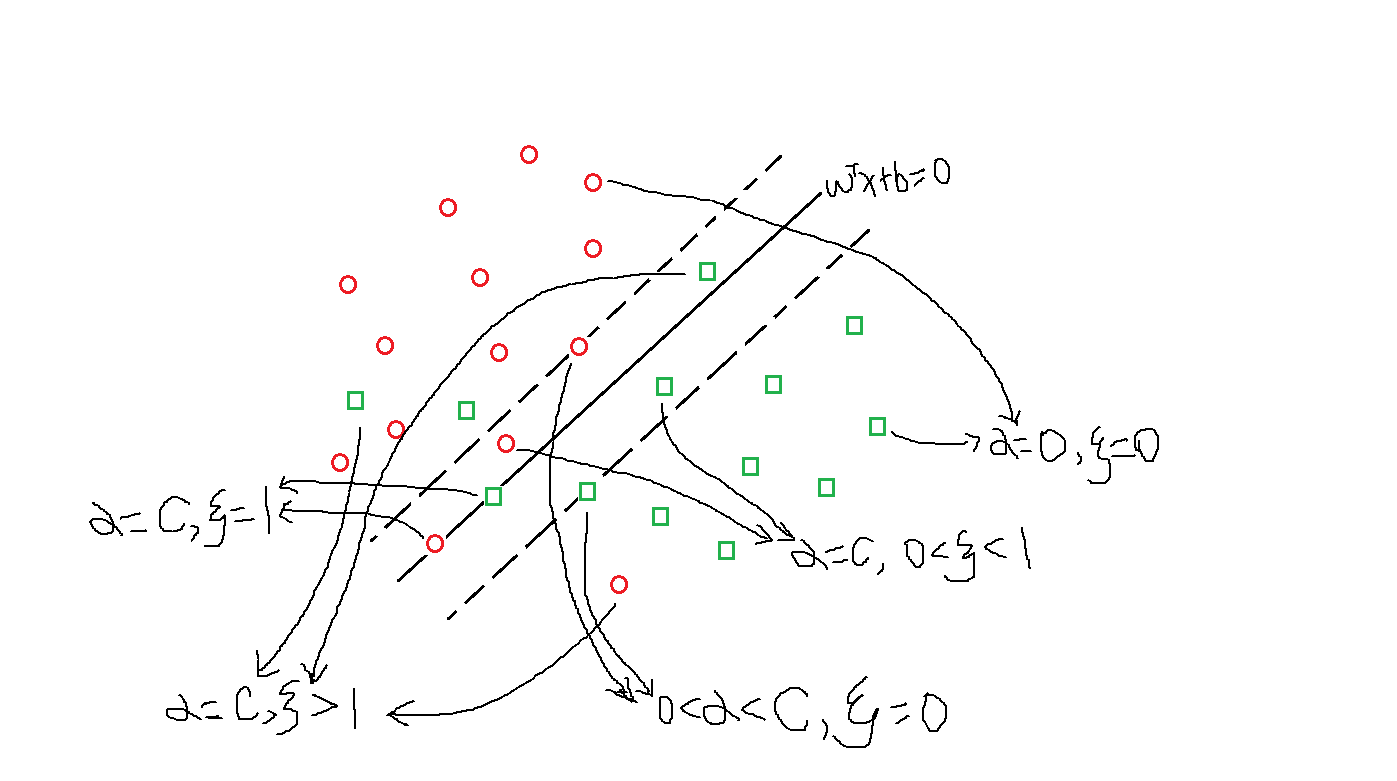 wᵀx+b=0
α=0, ξ=0
α=C, ξ=1
α=C, 0<ξ<1
α=C, ξ>1
0<α<C, ξ=0